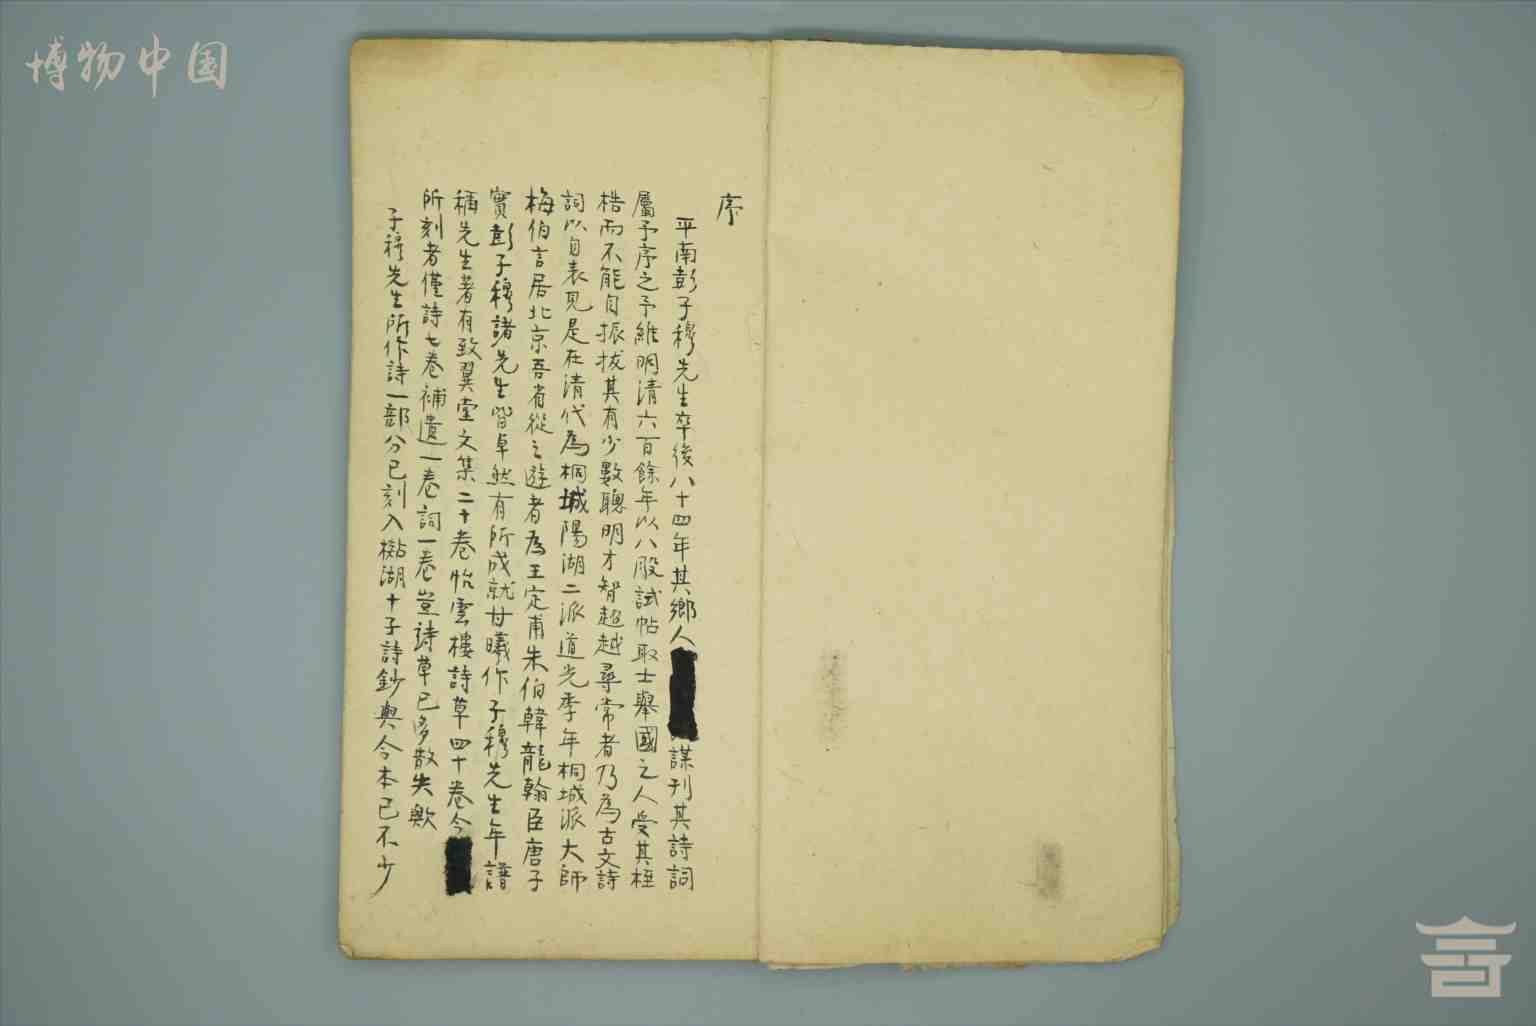 博物中国
序
平南彭子穆先生卒後八十四年其鄉人謀刊其詩詞
屬予序之予維明清六百餘年以八股試帖取士舉國之人受其桎
梏而不能自振拔其有少數聰明才智超越尋常者乃為古文詩
詞以自表見是在清代為桐城陽湖二派道光季年桐城派大師
梅伯言居北京吾省從之遊者為王定甫朱伯韓龍翰臣唐子
實彭子穆諸先生皆卓然有所成就甘曦作子穆先生年譜
稱先生著有致翼堂文集二十卷怡雲樓詩草四十卷今
所刻者僅詩七卷補遺一卷詞一卷豈詩草已多散失歟
子穆先生所作詩一部分已刻入榕湖十子詩鈔與今本已不少